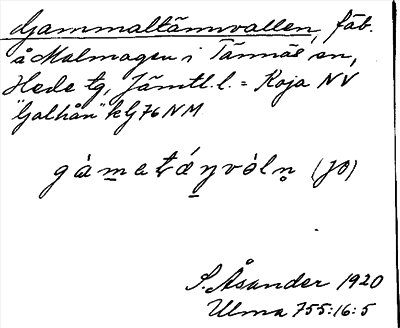 Gammaltämvallen, fäb.
å Malmagen i Tännäs sn,
Hede tg, Jämtl. l. = Koja NV
"Galhån" kbl 76 NM
(JO)
S. Åsander 1920
Ulma 755:16:5